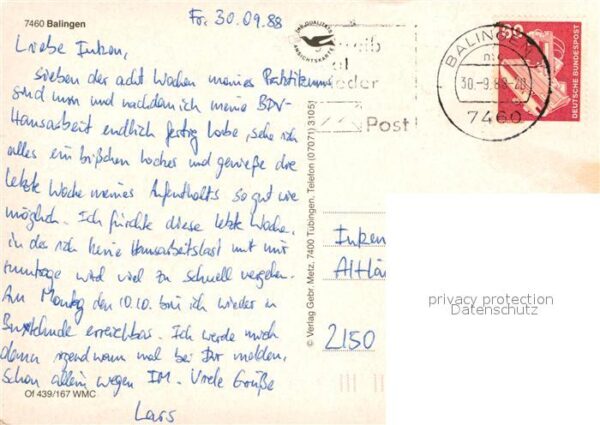 7460 Balingen
Fr. 30.09.88
Liebe Inken,
sieben der acht Wochen meines Praktikums
sind nun und nachdem ich meine BDV-
Hausarbeit endlich fertig habe, sehe ich
alles ein bißchen locker und genieße die
letzte Woche meines Aufenthalts so gut wie
möglich. Ich fürchte diese letzte Woche,
in der ich keine Hausarbeitslast mit mir
rumtrage wird viel zu schnell vergehen.
Am Montag den 10.10. bin ich wieder in
Buxtehude erreichbar. Ich werde mich
dann irgendwann mal bei Dir melden,
schon allein wegen IM. Viele Grüße
Lars
Of 439/167 WMC
IHR QUALITÄTS
ANSICHTSKARTE
reib
al
ieder
Post
BALINGEN
30.-9.88-20
7460
60
DEUTSCHE BUNDESPOST
© Verlag Gebr. Metz, 7400 Tübingen, Telefon (07071) 31051
Inken
Altlä
2150
privacy protection
Datenschutz